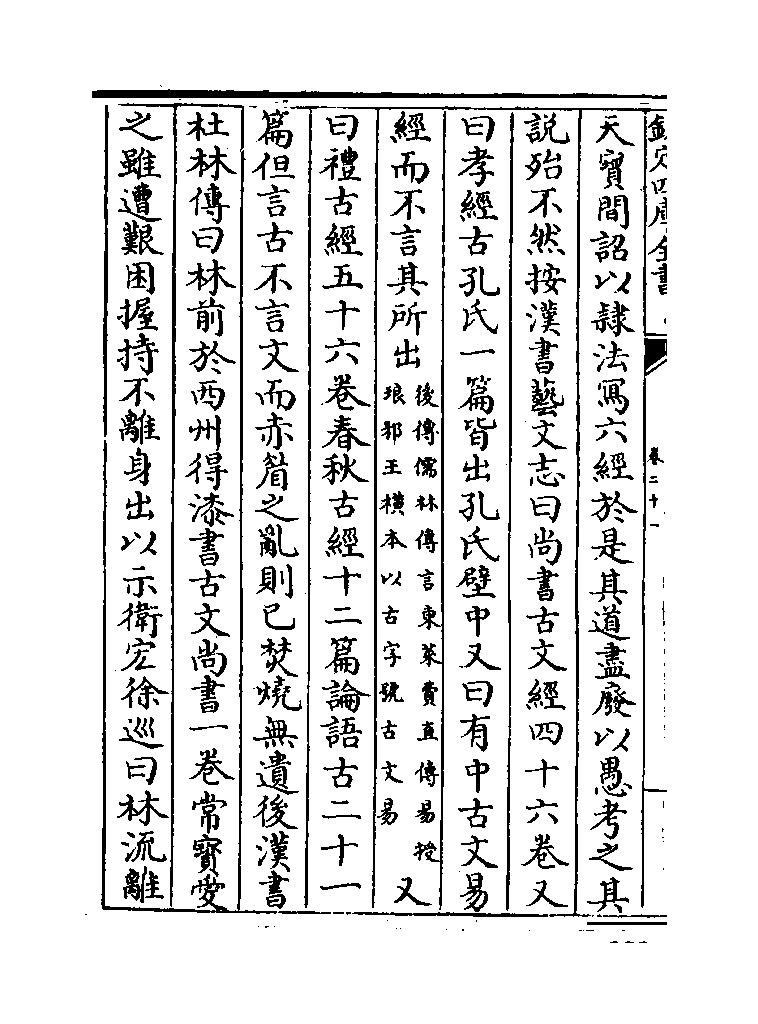 欽定四庫全書
卷二十一
天寶間詔以隸法寫六經於是其道盡廢以愚考之其
說殆不然按漢書藝文志曰尚書古文經四十六卷又
曰孝經古孔氏一篇皆出孔氏壁中又曰有中古文易
經而不言其所出
後傳儒林傳言東萊費直傳易授
琅邪王橫本以古字號古文易
又
曰禮古經五十六卷春秋古經十二篇論語古二十一
篇但言古不言文而赤眉之亂則已焚燒無遺後漢書
杜林傳曰林前於西州得漆書古文尚書一卷常寳愛
之雖遭艱困握持不離身出以示衛宏徐巡曰林流離